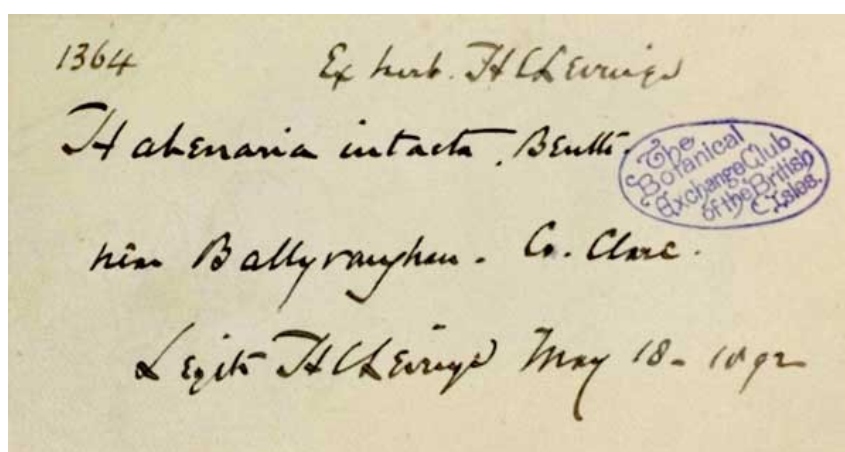 1364 Ex herb. H C Levinge
Habenaria intacta, Benth.
The
Botanical
Exchange Club
of the British
Isles.
near Ballyvaughan. Co. Clare.
Legit H C Levinge May 18 - 1892